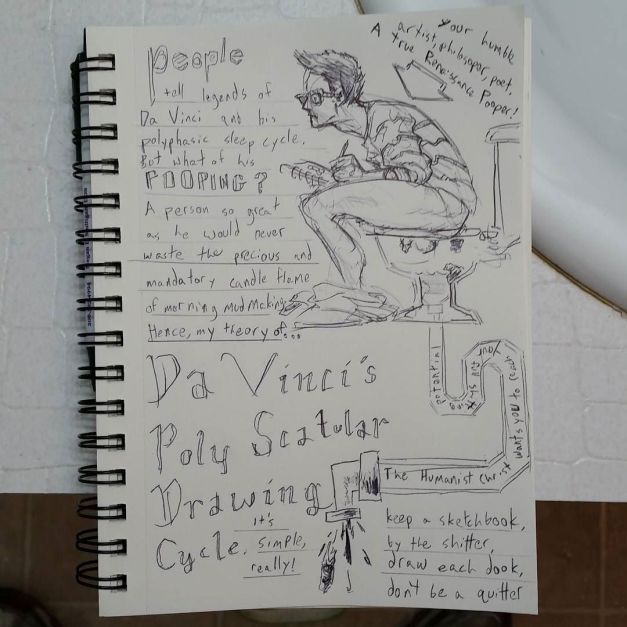 People
tell legends of
Da Vinci and his
polyphasic sleep cycle.
But what of his
POOPING?
A person so great
as he would never
waste the precious and
mandatory candle flame
of morning mudmaking.
Hence, my theory of...
Your humble
A artist, philosoper, poet.
true Renaissance Pooper!
Da Vinci's
Poly Scatular
Drawing
Cycle. it's
simple,
really!
potential
wants you to reach
The Humanist Christ
keep a sketchbook,
by the shitter,
draw each dook,
don't be a quitter